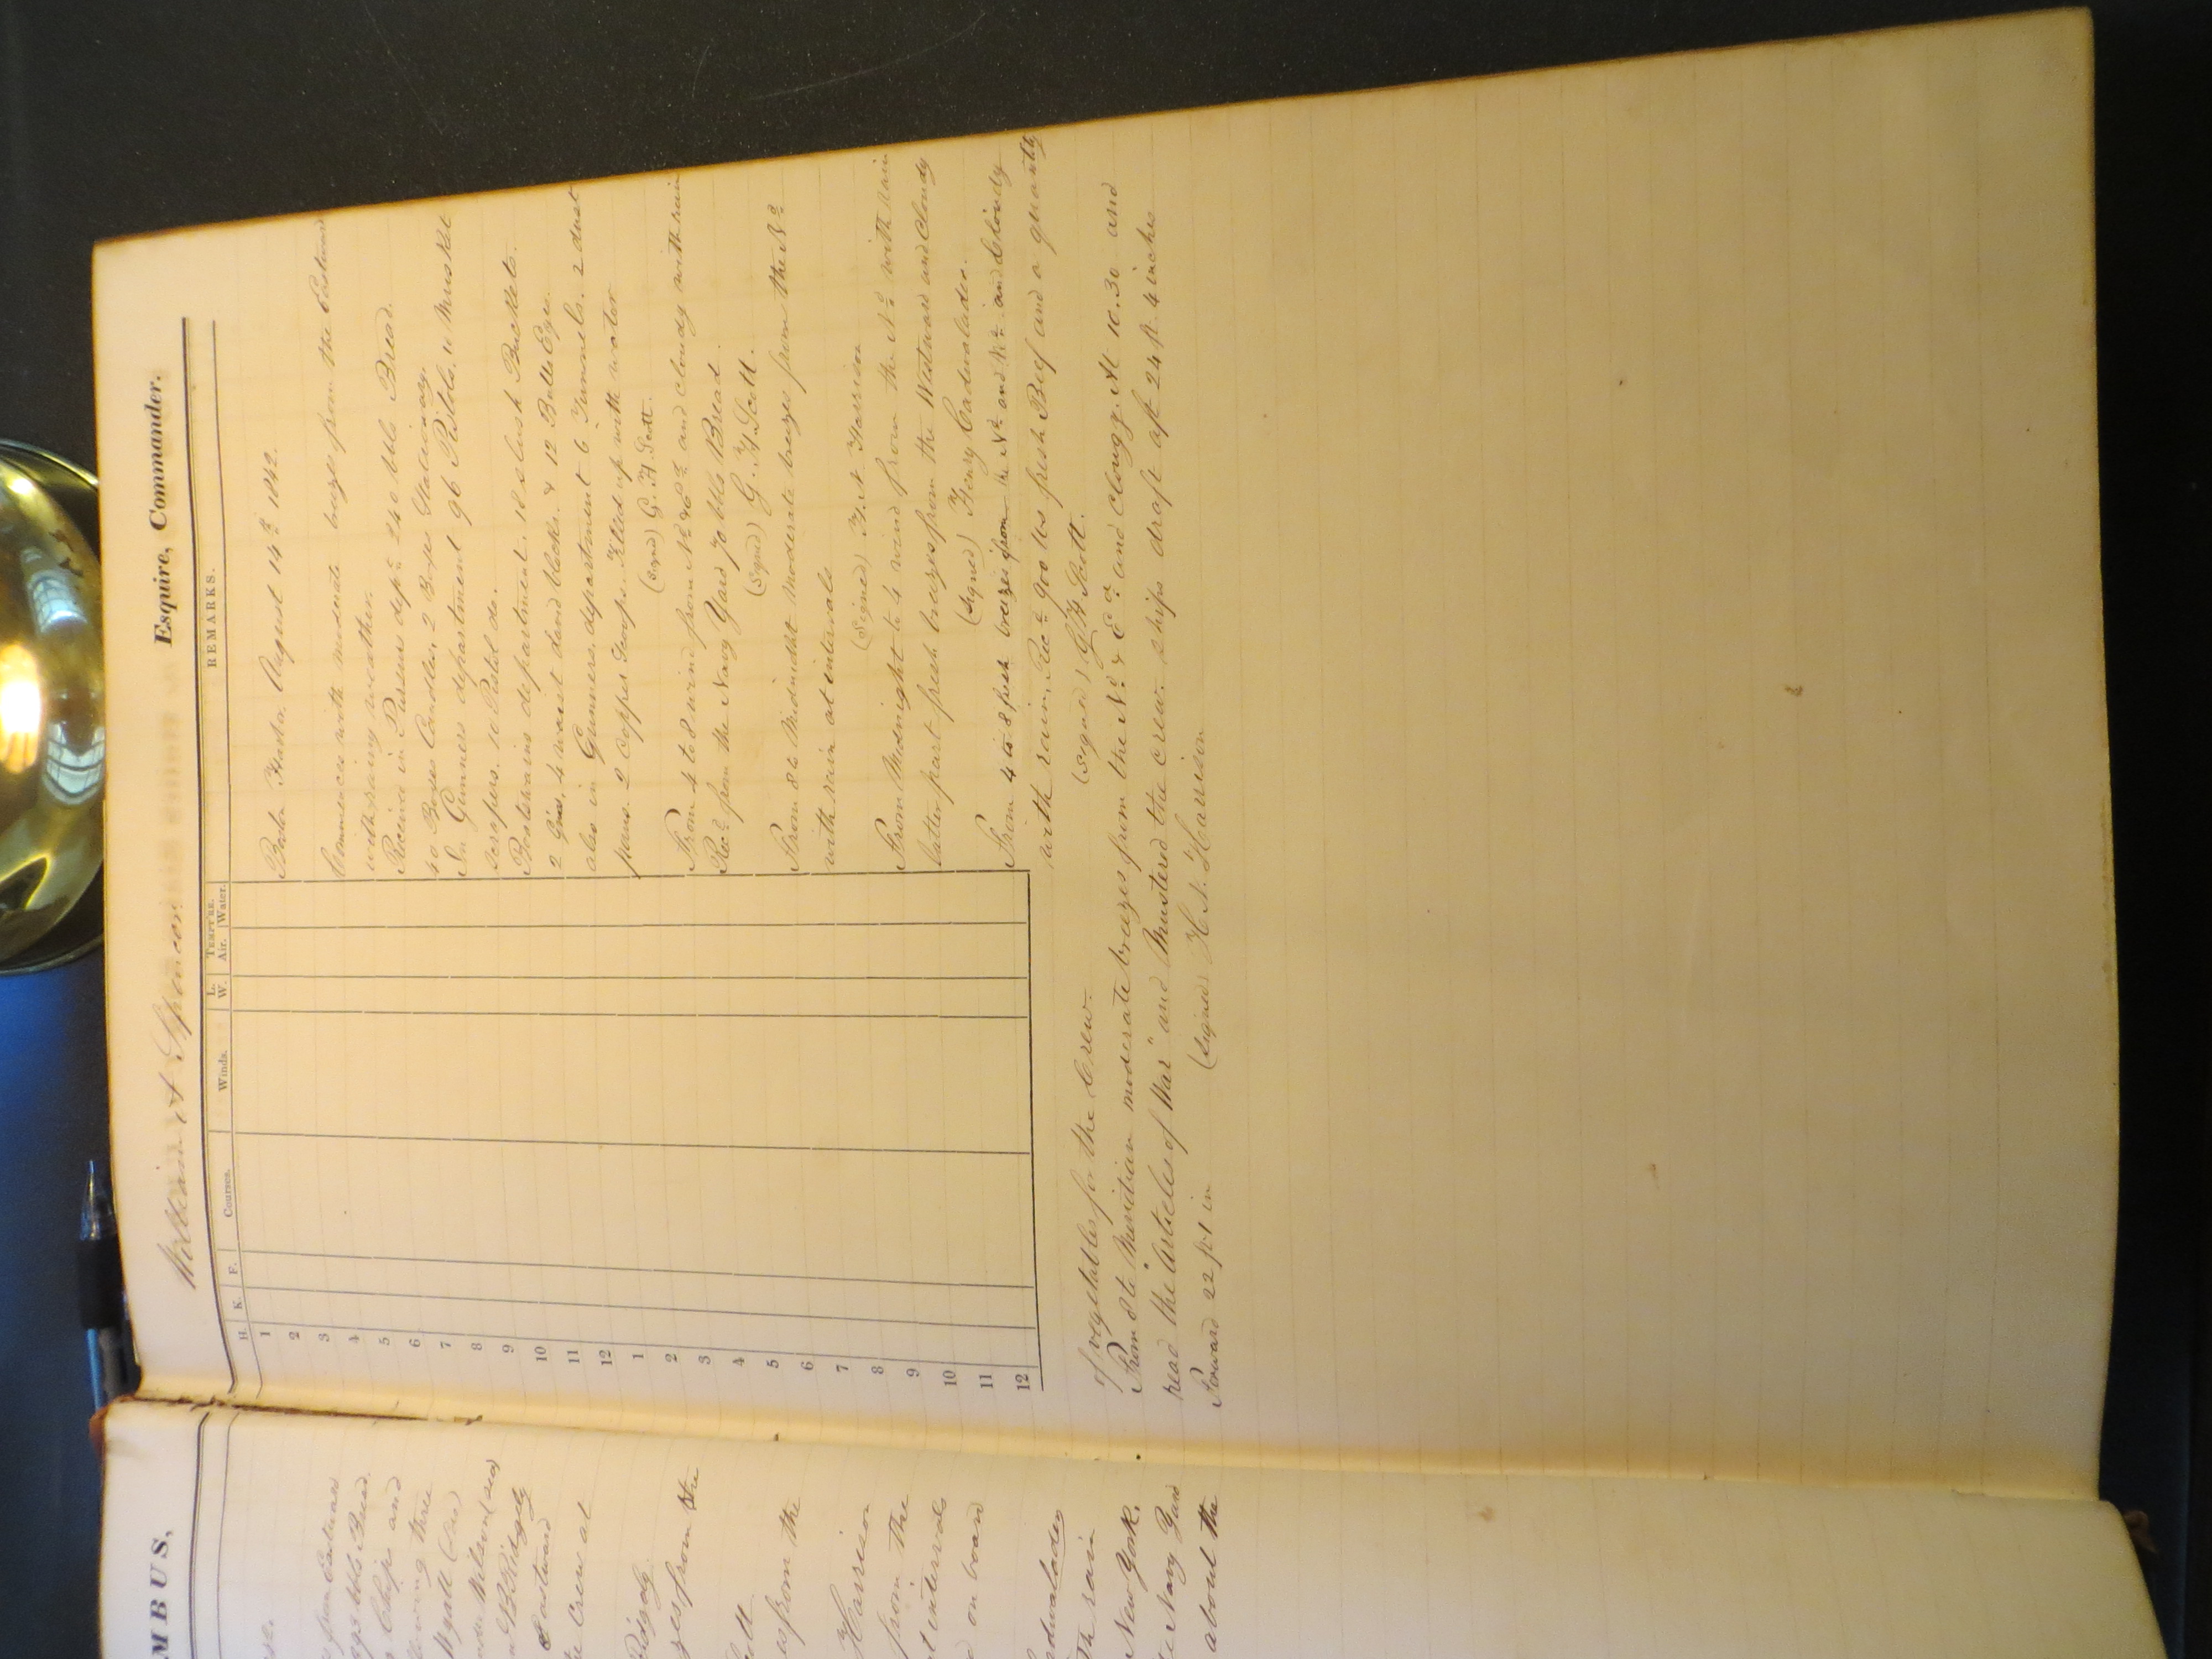 MBUS,
from Eastward
993 bbls Bread.
Chips and
three
Wyatt
Wilson
Ridgely
Eastward
Crew at
Ridgely
from the
Scott
from the
Harrison
from the
at intervals
on board
Cadwalader
rain
New York.
Navy Yard
about the
William A Spencer Esquire, Commander.
H. K. F. Courses. Winds. L. W. TEMPT'RE. Air. Water. REMARKS.
1
2
3
4
5
6
7
8
9
10
11
12
1
2
3
4
5
6
7
8
9
10
11
12
August 14th 1842.
Commences with moderate breeze from the Eastward
with rainy weather.
Received in Pursers dept 240 bbls Bread.
40 Boxes Candles, 2 Boxes Stationary.
In Gunners department 96 Pistols, 10 Musket
scrapers. 10 Pistol do.
Boatswains department. 18 slush Buckets.
2 Gins, 4 waist davit blocks. & 12 Bulls Eyes.
also in Gunners department 6 Funnels. 2 dust
pans. 2 Copper Scoops. Filled up with water
(signd) G. H. Scott.
From 4 to 8 wind from Nd & Ed and cloudy with rain
Recd from the Navy Yard 70 bbls Bread.
(Signed) G. H. Scott.
From 8 to Midnight Moderate breezes from the Nd
with rain at intervals
(Signed) H. N. Harrison
From Midnight to 4 wind from the Nd with rain
latter part fresh breezes from the Westward and Cloudy
(Signed) Henry Cadwalader.
From 4 to 8 fresh breezes from the Nd and Wd and Cloudy
with rain, Recd 900 lbs fresh Beef and a quantity
of vegetables for the Crew. (Signed) G. H. Scott.
From 8 to Meridian moderate breezes from the Nd & Ed and Cloudy. At 10.30 and
read the "Articles of War" and Mustered the crew. Ships draft aft 24 ft 4 inches
Forward 22 ft 1 in (Signed) H. N. Harrison